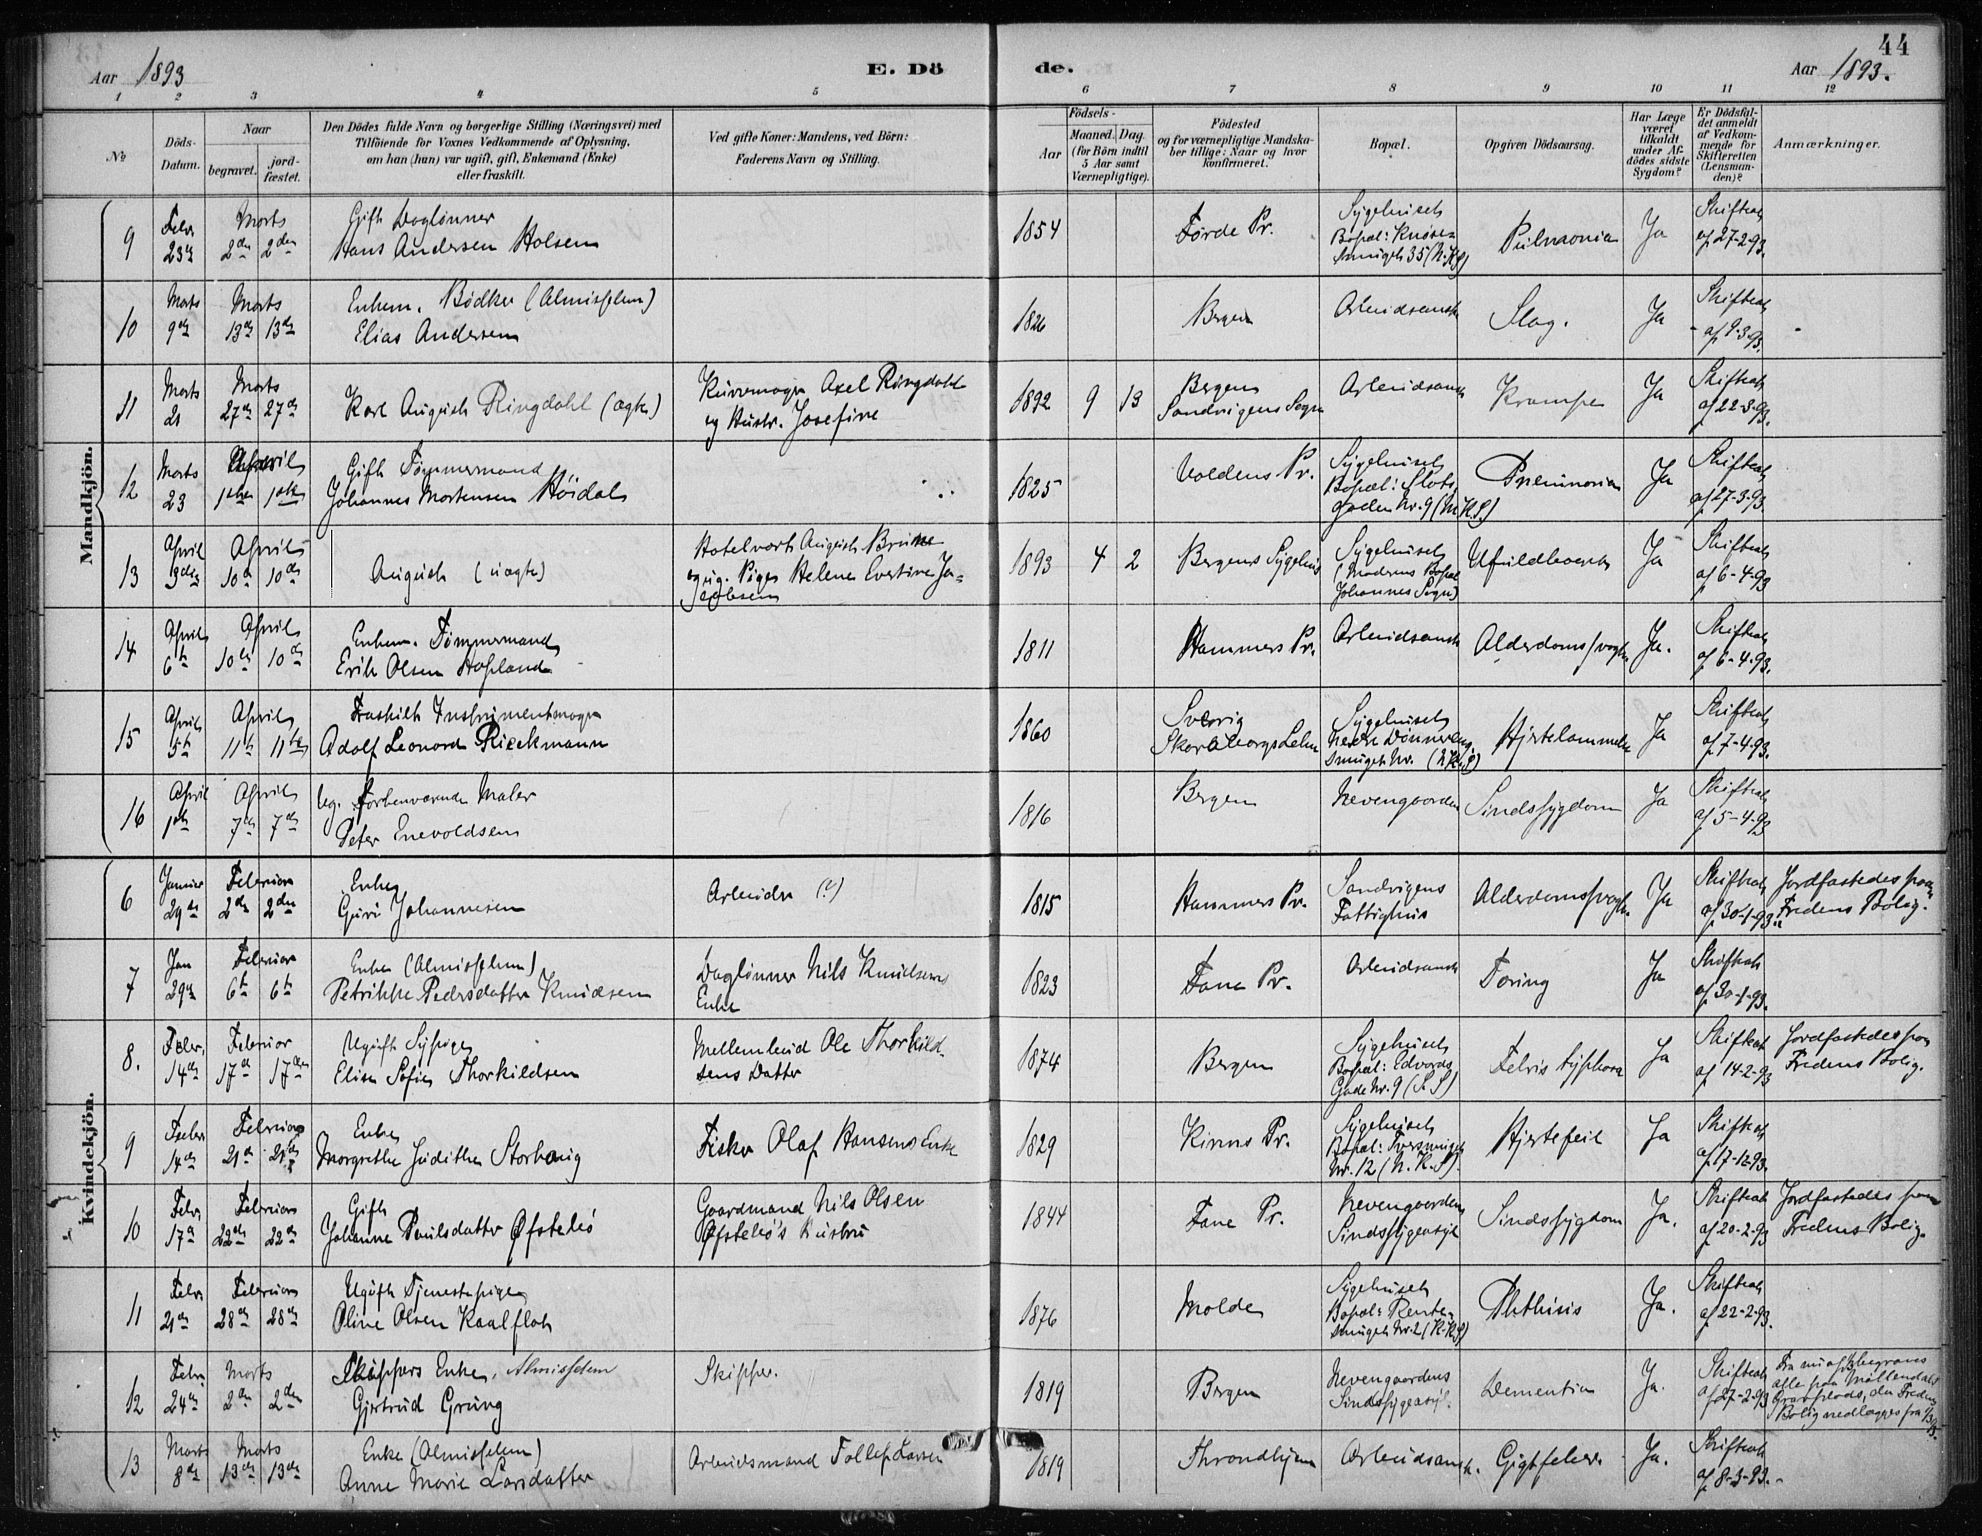 44
Aar 1893
E. Dö
de.
Aar 1893.
1 2 3 4 5 6 7 8 9 10 11 12
No
Döds-
Datum.
Naar
begravet.
jord-
fæstet.
Den Dödes fulde Navn og borgerlige Stilling (Næringsvei) med
Tilföiende for Voxnes Vedkommende af Oplysning,
om han (hun) var ugift, gift, Enkemand (Enke)
eller fraskilt.
Ved gifte Koner: Mandens, ved Börn:
Faderens Navn og Stilling.
Födsels-
Aar
Maaned. Dag.
(for Börn indtil
5 Aar samt
Værnepligtige).
Födested
og for værnepligtige Mandska-
ber tillige: Naar og hvor
konfirmeret.
Bopæl.
Opgiven Dödsaarsag.
Har Læge
været
tilkaldt
under Af-
dödes sidste
Sygdom?
Er Dödsfal-
det anmeldt
af Vedkom-
mende for
Skifteretten
(Lensman-
den)?
Anmærkninger.
Mandkjön.
9 Febr 23de Marts 2den 2den Gift Daglønner
Hans Andersen Holsen
1854 Førde Pr. Sygehuset
Bopæl: Knøse-
smuget 35 (N.K.S) Ja Skifteatt
af 27-2-93.
10 Marts 9de Marts 13de 13de Enkem. Bødker (Almisselem)
Elias Andersen
1826 Bergen Arbeidsanst Slag. Ja Skifteatt
af 9-3-93.
11 Marts 21 Marts 27de 27de Karl August Ringdahl (ægte)
Kurvmager Axel Ringdahl
og Hustr. Josefine
1892 9 13 Bergen
Sandvigens Sogn Arbeidsanst Krampe Ja Skifteatt
af 22-3-93.
12 Marts 23 April 1ste 1ste Gift Tømmermand
Johannes Mortensen Høidal
1825 Voldens Pr. Sygehuset
Bopæl: Slots
gaden Nr. 9 (N.K.S.) Pneumonia Ja Skifteatt
af 27-3-93.
13 April 3die April 10de 10de August (uægte)
Hotelvært August Brune
og ug. Pige Helene Evertine Ja-
cobsen
1893 4 2 Bergens Sygehus Sygehuset
(Moderens Bopæl
Johannes Sogn) Ufuldbaaret Ja Skifteatt
af 6-4-93
14 April 6te April 10de 10de Enkem. Tømmermand
Erik Olsen Hopland
1811 Hammers Pr. Arbeidsanst Alderdomssvaghed Ja. Skifteatt
af 6-4-93.
15 April 5te April 11te 11te Fraskilt Instrumentmager
Adolf Leonard Rieckmann
1860 Sverig
Skaraborgs Lehn Sygehuset
Nedre Dønnereng.
smuget Nr. (N.K.S) Hjertelammelse Ja Skifteatt
af 7-4-93.
16 April 1ste April 7de 7de Ug. Forhenværende Maler
Peter Enevoldsen
1816 Bergen Nevengaarden Sindssygdom Ja Skifteatt
af 5-4-93
Kvindekjön.
6 Januar 29de Februar 2den 2den Enke
Guri Johannesen
Arbeider (?)
1815 Hammers Pr. Sandvigens
Fattighus Alderdomssvaghed Ja Skifteatt
af 30-1-93. Jordfæstedes paa
Fredens Bolig.
7 Jan 29de Februar 6te 6te Enke (Almisselem)
Petrikke Pedersdatter Knudsen
Daglønner Nils Knudsens
Enke
1823 Fane Pr. Arbeidsanst Tæring Ja Skifteatt
af 30-1-93.
8. Febr. 14de Februar 17de 17den Ugift Sypige
Elise Sofie Thorkildsen
Mellembud Ole Thorkild-
sens Datter
1874 Bergen Sygehuset
Bopæl: Edvards
Gade Nr. 9 Febris typhosa Ja Skifteatt
af 14-2-93 Jordfæstedes paa
Fredens Bolig.
9 Febr 14de Februar 21de 21de Enke
Margrethe Judithe Storhaug
Fisker Olaf Hansens Enke
1829 Kinns Pr. Sygehuset
Bopæl: Tversmuget
Nr. 12 (N.K.S). Hjertefeil Ja Skifteatt
af 17-12-93.
10 Febr. 17de Februar 22de 22de Gift
Johanne Poulsdatter Øfstebø
Gaardmand Nils Olsen
Øfstebø's Hustru
1844 Fane Pr. Nevengaardens
Sindssygeasyl Sindssygdom Ja. Skifteatt
af 20-2-93 Jordfæstedes paa
Fredens Bolig.
11 Febr. 21de Februar 28de 28de Ugift Tjenestepige
Oline Olsen Kaalflot
1876 Molde Sygehuset
Bopæl: Rente-
smuget Nr. 2 (K.K.S) Phthisis Ja. Skifteatt
af 22-2-93.
12 Febr. 24de Marts 2den 2den Skippers Enke, Almisselem
Gjertrud Grung
Skipper.
1819 Bergen Nevengaardens
Sindssygeasyl. Dementia Ja. Skifteatt
af 27-2-93 Fra nu af begraves
alle paa Møllendals
Gravplads, da Fredens
Bolig nedlægges fra 1/3 93.
13 Marts 8de Marts 13de 13de Enke (Almisselem)
Anne Marie Larsdatter
Arbeidsmand Tollef Larsen
1819 Throndhjem Arbeidsanst. Gigtfeber Ja. Skifteatt
af 8-3-93.